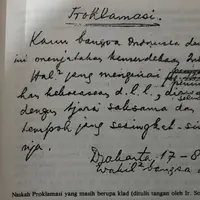 Proklamasi.
Kami bangsa Indonesia de
ini menjatakan kemerdekaan In
Hal² jang mengenai
han kekoeasaan d.l.l., dise
dengan tjara saksama dan
tempoh jang sesingkat-si
nja.
Djakarta, 17 - 8
Wakil² bangsa
Naskah Proklamasi yang masih berupa klad (ditulis tangan oleh Ir. So